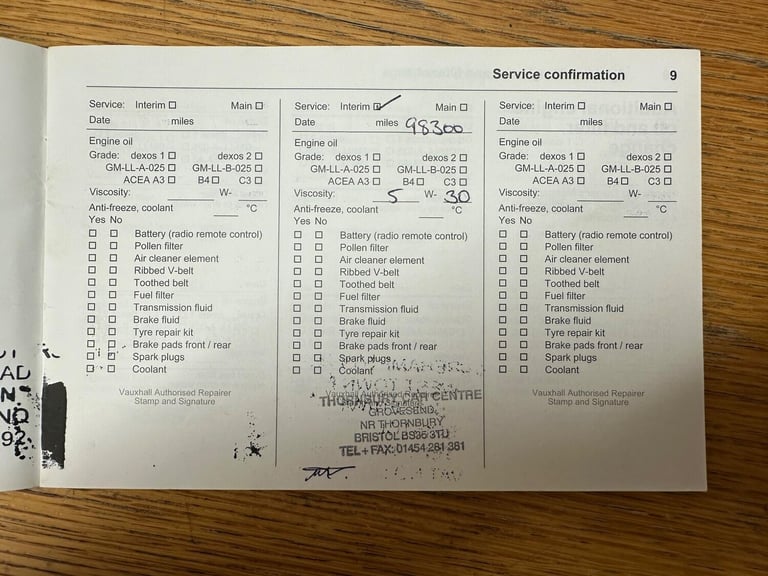 Service confirmation 9
Service: Interim Main
Date miles
Engine oil
Grade: dexos 1 dexos 2
GM-LL-A-025 GM-LL-B-025
ACEA A3 B4 C3
Viscosity: W-
Anti-freeze, coolant °C
Yes No
Battery (radio remote control)
Pollen filter
Air cleaner element
Ribbed V-belt
Toothed belt
Fuel filter
Transmission fluid
Brake fluid
Tyre repair kit
Brake pads front / rear
Spark plugs
Coolant
Vauxhall Authorised Repairer
Stamp and Signature
Service: Interim Main
Date miles 98300
Engine oil
Grade: dexos 1 dexos 2
GM-LL-A-025 GM-LL-B-025
ACEA A3 B4 C3
Viscosity: 5 W- 30
Anti-freeze, coolant °C
Yes No
Battery (radio remote control)
Pollen filter
Air cleaner element
Ribbed V-belt
Toothed belt
Fuel filter
Transmission fluid
Brake fluid
Tyre repair kit
Brake pads front / rear
Spark plugs
Coolant
Vauxhall Authorised Repairer
THORNBURY CAR CENTRE
GROVESEND
NR THORNBURY
BRISTOL BS35 3TU
TEL + FAX: 01454 281 381
Service: Interim Main
Date miles
Engine oil
Grade: dexos 1 dexos 2
GM-LL-A-025 GM-LL-B-025
ACEA A3 B4 C3
Viscosity: W-
Anti-freeze, coolant °C
Yes No
Battery (radio remote control)
Pollen filter
Air cleaner element
Ribbed V-belt
Toothed belt
Fuel filter
Transmission fluid
Brake fluid
Tyre repair kit
Brake pads front / rear
Spark plugs
Coolant
Vauxhall Authorised Repairer
Stamp and Signature
AD
92